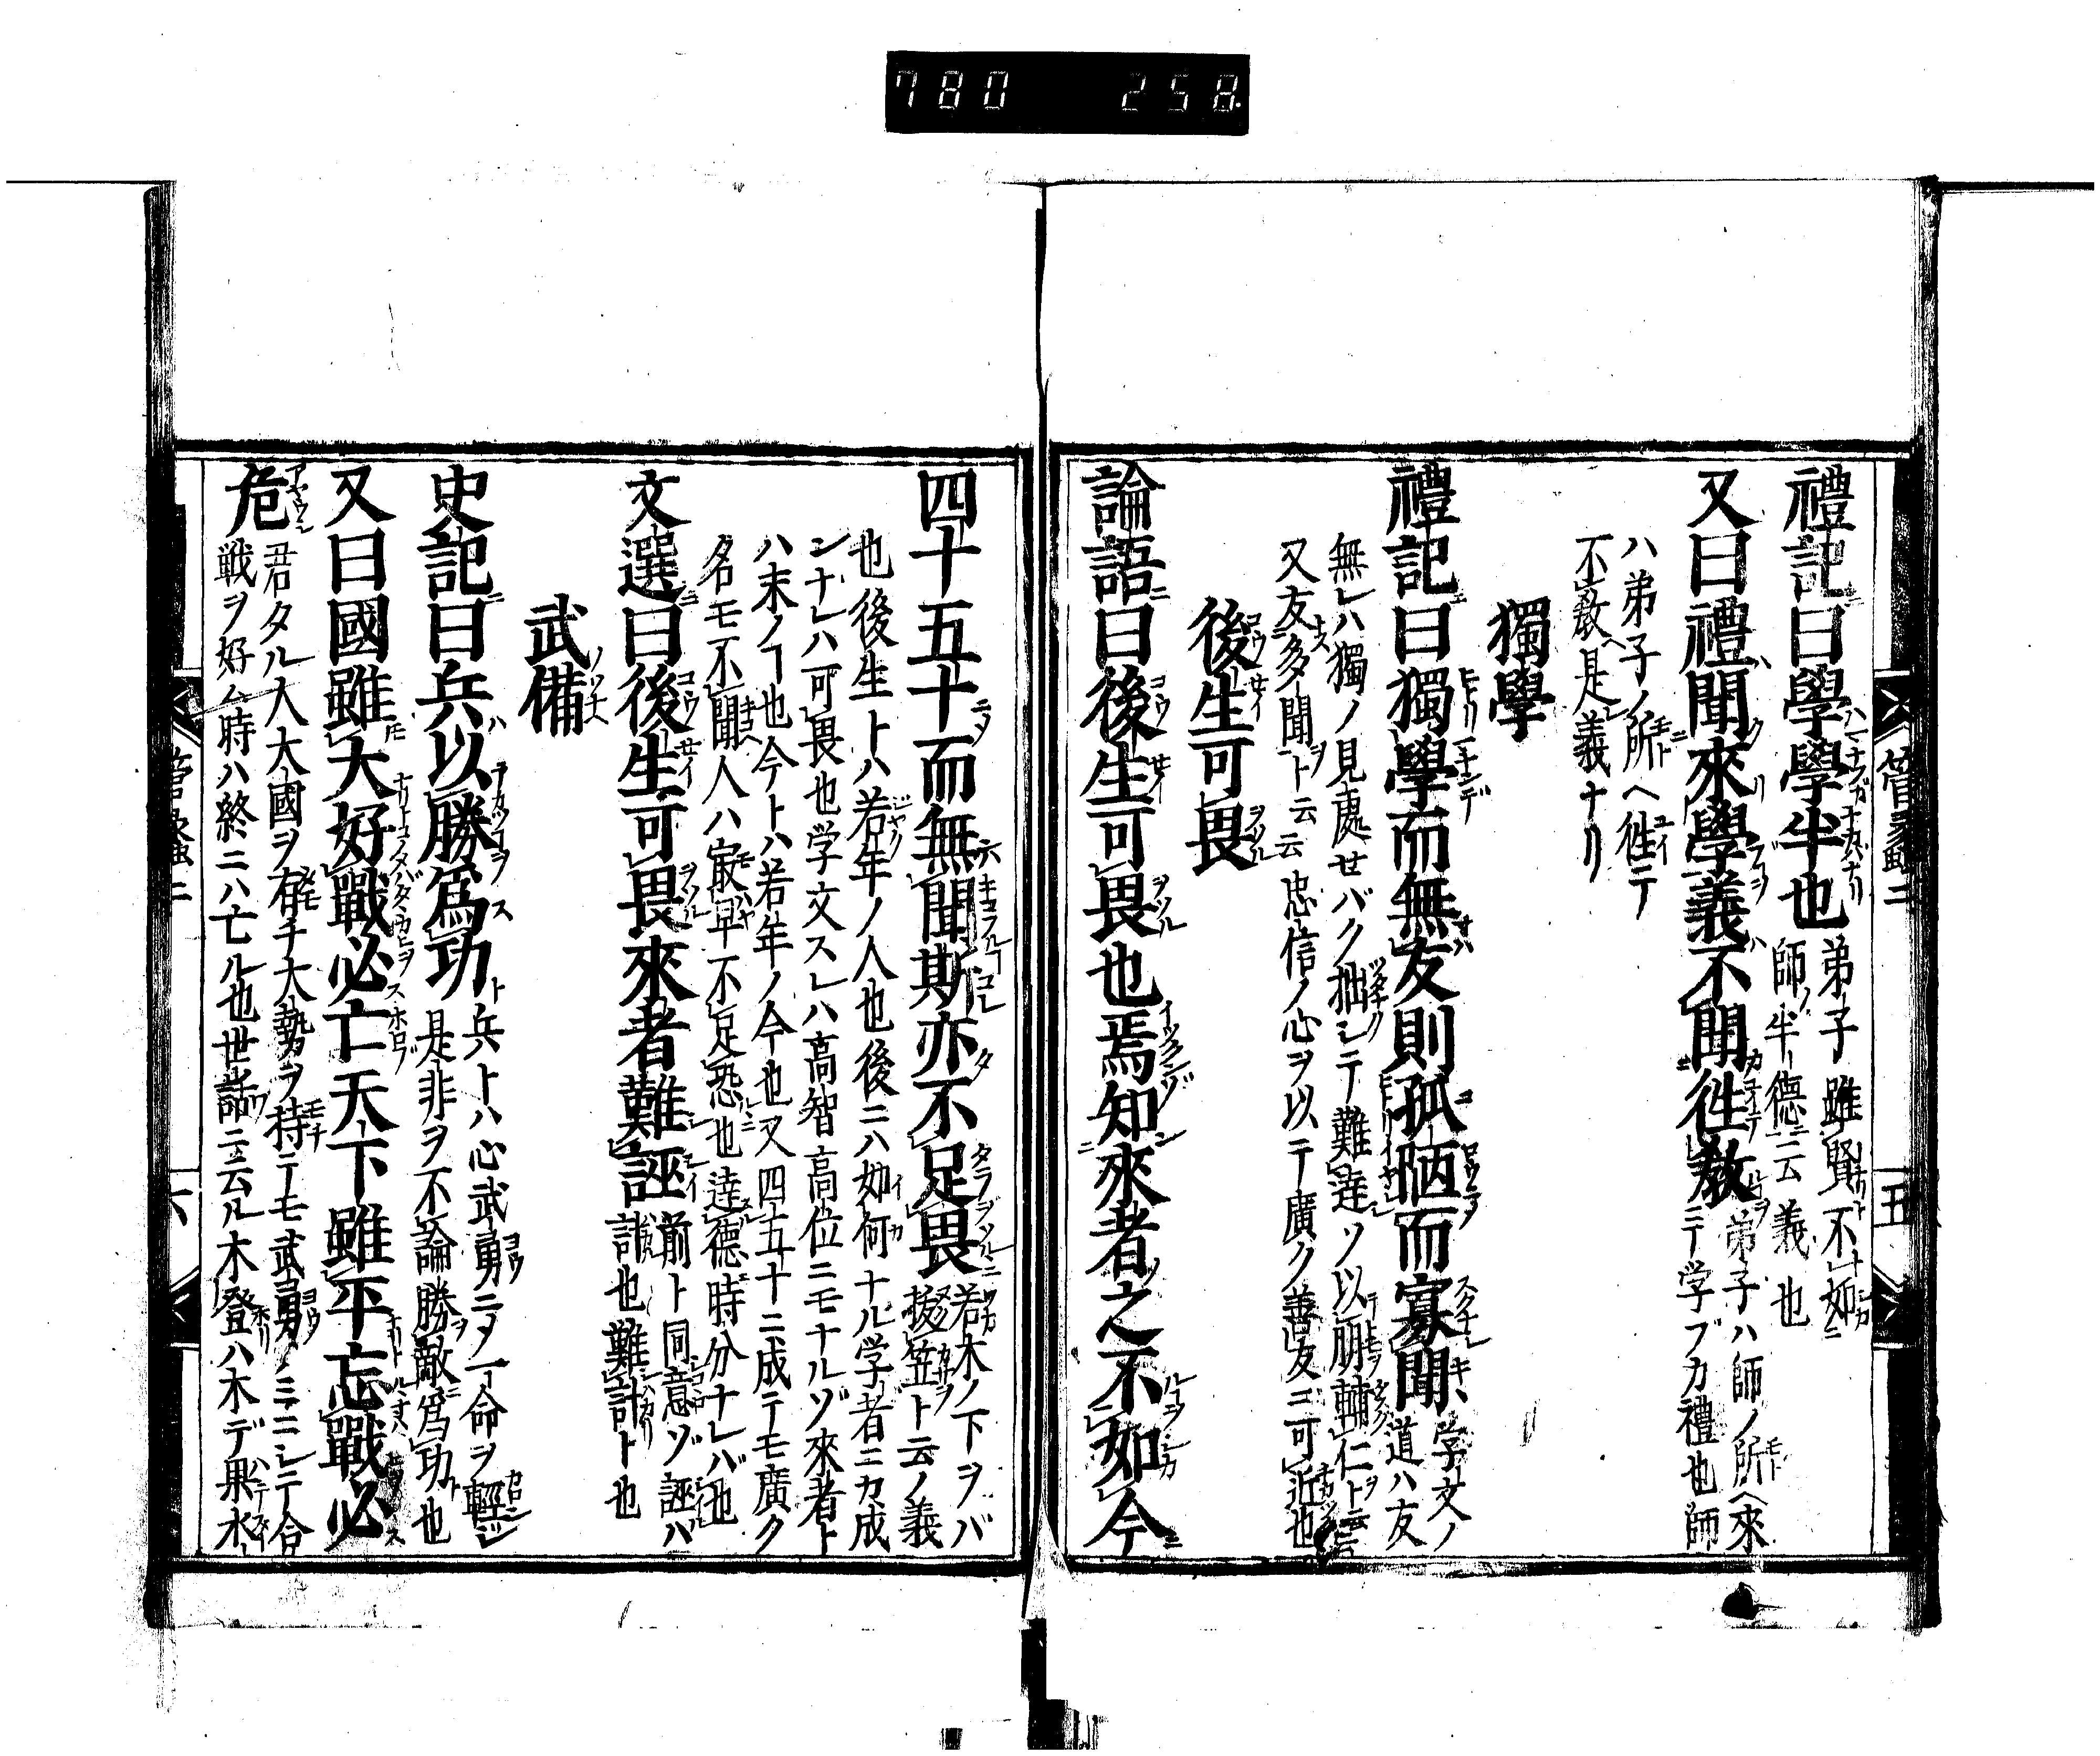 780 258
管蠡二
五
禮記曰學學半也 弟子雖賢不如
師半德云義也
又曰禮聞來學義不聞徃教 弟子ハ師ノ所ヘ來
テ学ブカ禮也師
ハ弟子ノ所ヘ徃テ
不教是義ナリ
獨學
禮記曰獨學而無友則孤陋而寡聞 学文ノ
道ハ友
無レハ獨ノ見處せバク拙シテ難達ソ以朋輔仁ト云云
又友多聞ト云云忠信ノ心ヲ以テ廣ク善友ニ可近也
後生可畏
論語曰後生可畏也焉知來者之不如今
四十五十而無聞斯亦不足畏 若木ノ下ヲバ
掇笠ト云ノ義
也後生トハ若年ノ人也後ニハ如何ナル学者ニカ成
ンナレハ可畏也学文スレハ高智高位ニモナルゾ來者ト
ハ末ノヿ也今トハ若年ノ今也又四五十ニ成テモ廣ク
名モ不聞人ハ最早不足恐也達德時分ナレバ也
文選曰後生可畏來者難誣 前ト同意ゾ誣ハ
計也難計ト也
武備
史記曰兵以勝爲功 兵トハ心武勇ニノ一命ヲ輕シ
是非ヲ不論勝敵爲功也
又曰國雖大好戰必亡天下雖平忘戰必
危 君タル人大國ヲ有チ大勢ヲ持テモ武勇ノミニシテ合
戦ヲ好ム時ハ終ニハ亡ル也世話ニ云ル木登ハ木デ果水
管蠡二
六